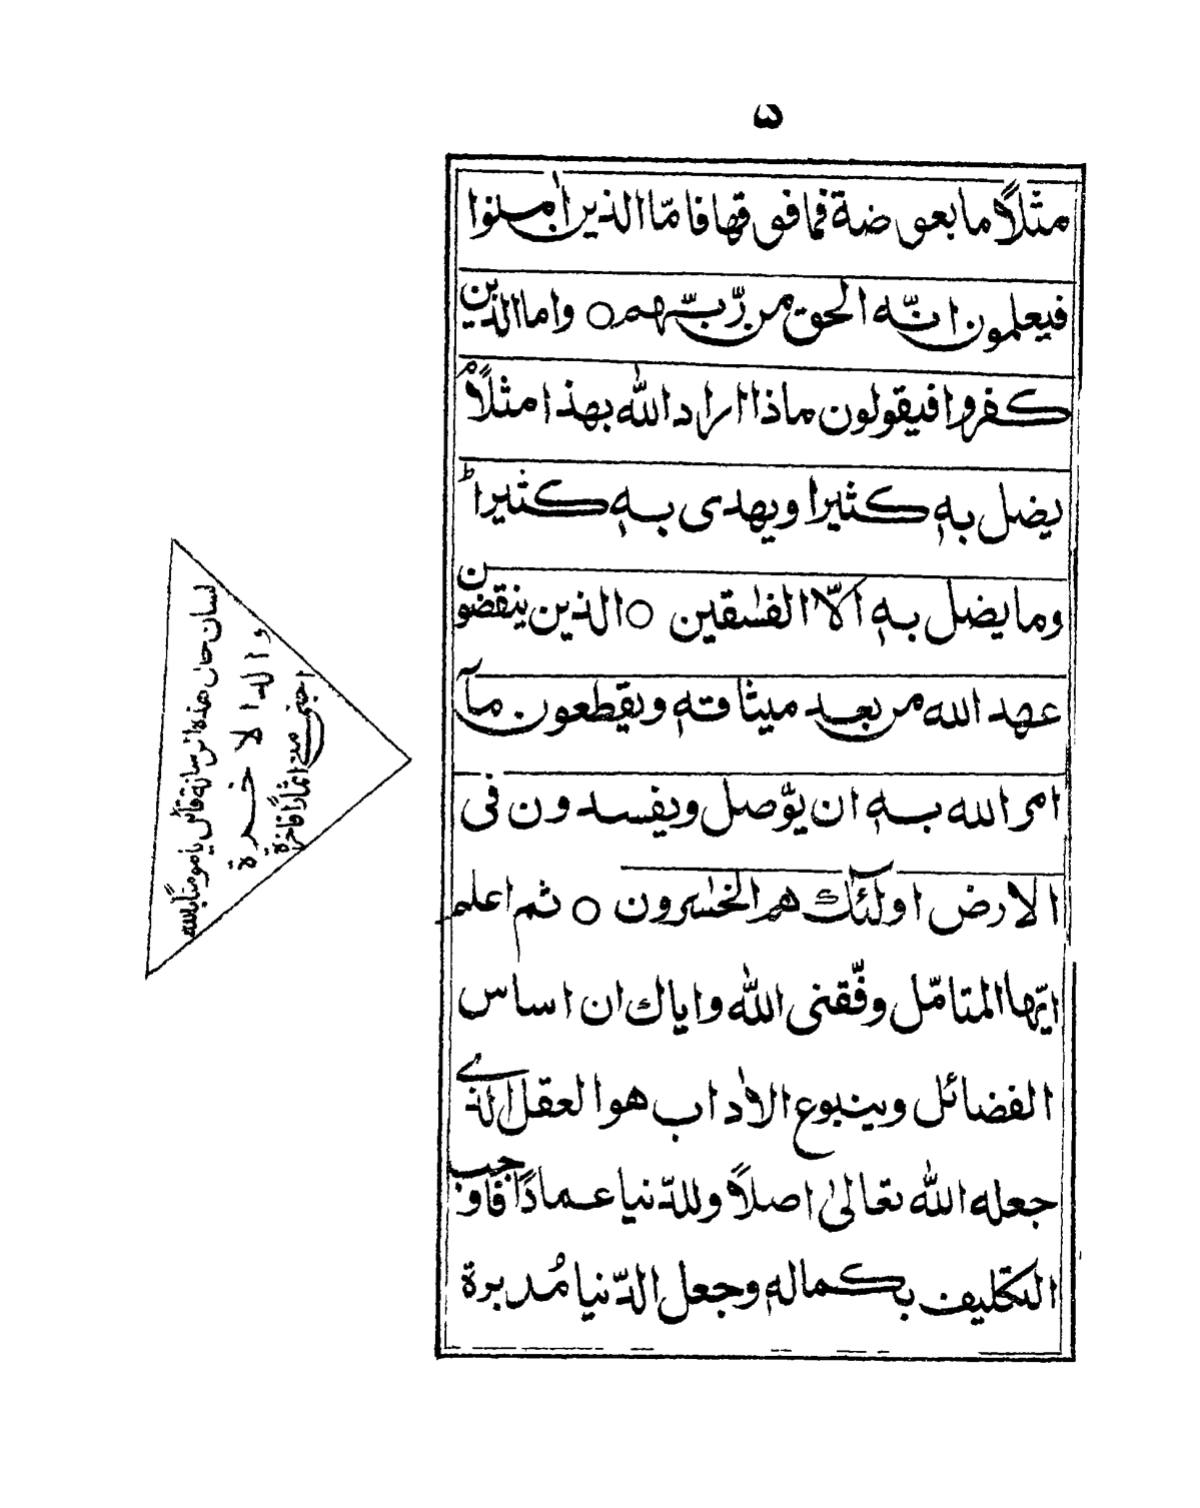 ۵
مثلاً ما بعوضة فما فوقها فامّا الذين اٰمنوا
فيعلمون انّه الحق من رّبّهم ○ واما الذين
كفروا فيقولون ماذا اراد اللّٰه بهذا مثلاًم
يضل به كثيرا ويهدى به كثيراط
وما يضل به الّا الفٰسقين ○ الذين ينقضون
عهد الله من بعد ميثاقه ويقطعون مآ
امر الله به ان يّوصل ويفسدون فى
الارض اولٓئك هم الخٰسرون ○ ثم اعلم
ايّها المتامّل وفّقنى اللّٰه واياك ان اساس
الفضائل وينبوع الاٰداب هو العقل الذے
جعله اللّٰه تعالىٰ اصلاً وللدّنيا عمادًا فاوجب
التكليف بكماله وجعل الدّنيا مُدبرة
لسان حال هذه الرسالة قائل يا مومنًا بالله
و الدا لا خرة
اجتنى من اثمارًا فاخرة